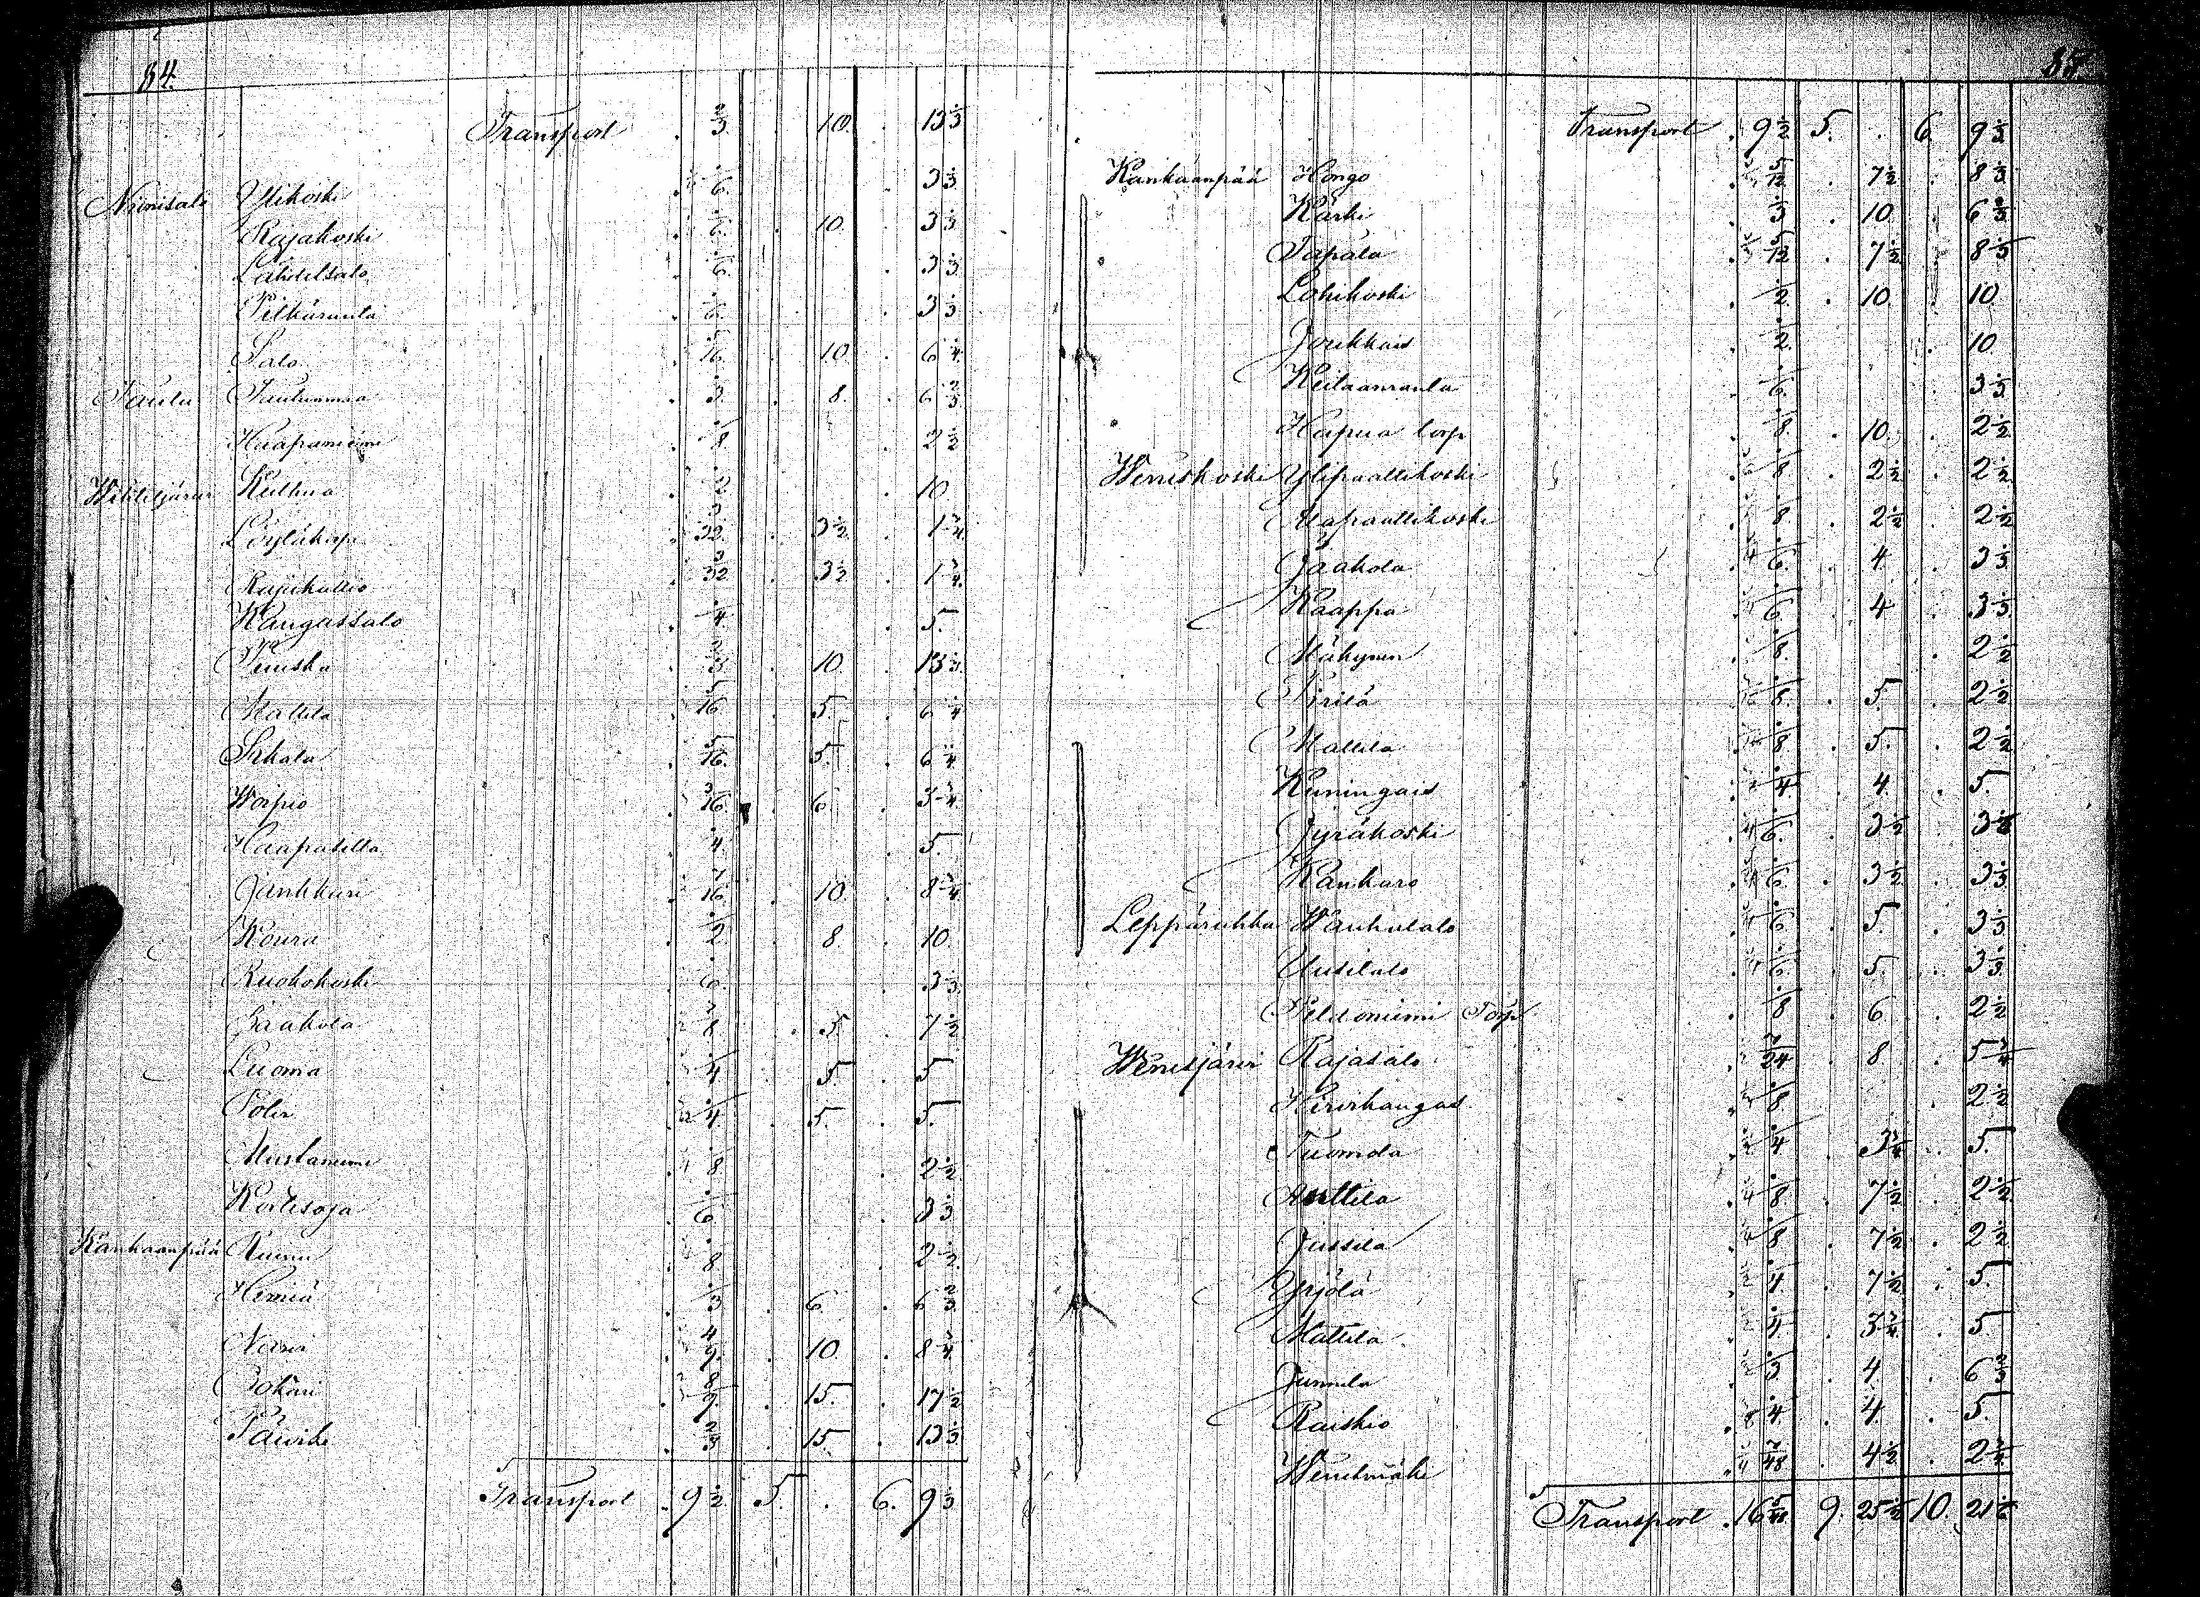 84.
Transport . 2/3 . 10. . 13 1/3
Niinisalo Ylikoski 1/6. . 3 1/3
Rajakoski . 1/6. . 10. . 3 1/3
Lähdetsalo . 1/6. . 3 1/3
Pitkäranta . 1/6. . 3 1/3
Salo . 5/16. . 10. . 6 1/4.
Taulu . 1/3. . 8. . 6 2/3
Haapaniemi . 1/8 . 2 1/2
Keithua . 1/2. . 10.
Löyläkorpi . 3/32. . 3 1/2. . 1 3/4
Rajakallio . 3/32 . 3 1/2 . 1 3/4.
Kangassalo . 1/4 . 5.
Puuska . 2/3 . 10. . 13 1/3.
Mattila . 5/16 . 5. . 6 1/4
Sikala . 5/16. . 5. . 6 1/4
Worpio . 3/16. . 6. . 3 3/4
Haapasilta . 1/4. . 5.
Jankkari . 7/16. . 10. . 8 3/4
Koura . 1/2. . 8. . 10
Ruokokoski . 1/6. . 3 1/3.
Jaakola . 3/8 . 5. . 7 1/2
Luoma . 1/4 . 5. . 5
. 1/4. . 5. . 5.
Mustaniemi . 1/8 . 2 1/2
. 1/6. . 3 1/3.
Kankaanpää . 1/8 . 2 1/2.
Herniä . 1/3 . 6. . 6 2/3
. 4/9. . 10. . 8 3/4
. 8/9. . 15. . 17 1/2
Päivike . 2/3 . 15. . 13 1/3
Transport . 9 1/2 5. . 6. 9 1/3
85.
Transport . 9 1/2 5. . 6. 9 1/3
Kankaanpää Hongo . 5/12 . 7 1/2 . 8 1/3
Kärki . 1/3 . 10. . 6 2/3
Tapala . 5/12 . 7 1/2 . 8 1/3
Lohikoski . 1/2. . 10. . 10.
Joukkais . 1/2. . 10
Keilaanranta . 1/6. . 3 1/3.
Hapua torp . 1/8. . 10. . 2 1/2
Weneskoski Ylipaattikoski . 1/8 . 2 1/2 . 2 1/2
Alapaattikoski . 1/8 . 2 1/2 . 2 1/2
Jaakola . 1/6. . 4 . 3 1/3
Kaappa . 1/6. . 4 . 3 1/3
Mähynen . 1/8. . 2 1/2
Pirilä . 1/8. . 5. . 2 1/2
Mattila . 1/8 . 5. . 2 1/2
Kuningais . 1/4 . 4. . 5.
Jyräkoski . 1/6. . 3 1/2 . 3 1/3
Kankaro . 1/6. . 3 1/2. . 3 1/3
Leppäruhka Wanhatalo . 1/6 . 5. . 3 1/3
Uusitalo . 1/6. . 5. . 3 1/3
Peltoniemi Torp . 1/8 . 6 . 2 1/2
Wenesjärvi Rajasalo . 7/24 . 8 . 5 3/4
Hirvikangas . 1/8 . 2 1/2
Tuomola . 1/4 . 3 3/4 . 5.
Anttila . 1/8 . 7 1/2 . 2 1/2
Jussila . 1/8 . 7 1/2 . 2 1/2
Yrjölä . 1/4. . 7 1/2 . 5.
Mattila . 1/4. . 3 3/4 . 5
Junnila . 1/3 . 4. . 6 2/3
Raiskio . 1/4. . 4. . 5.
Wenesmäki . 7/48 . 4 1/2 . 2 3/4
Transport . 16 5/48 9. 25 1/2 10. 21 1/6